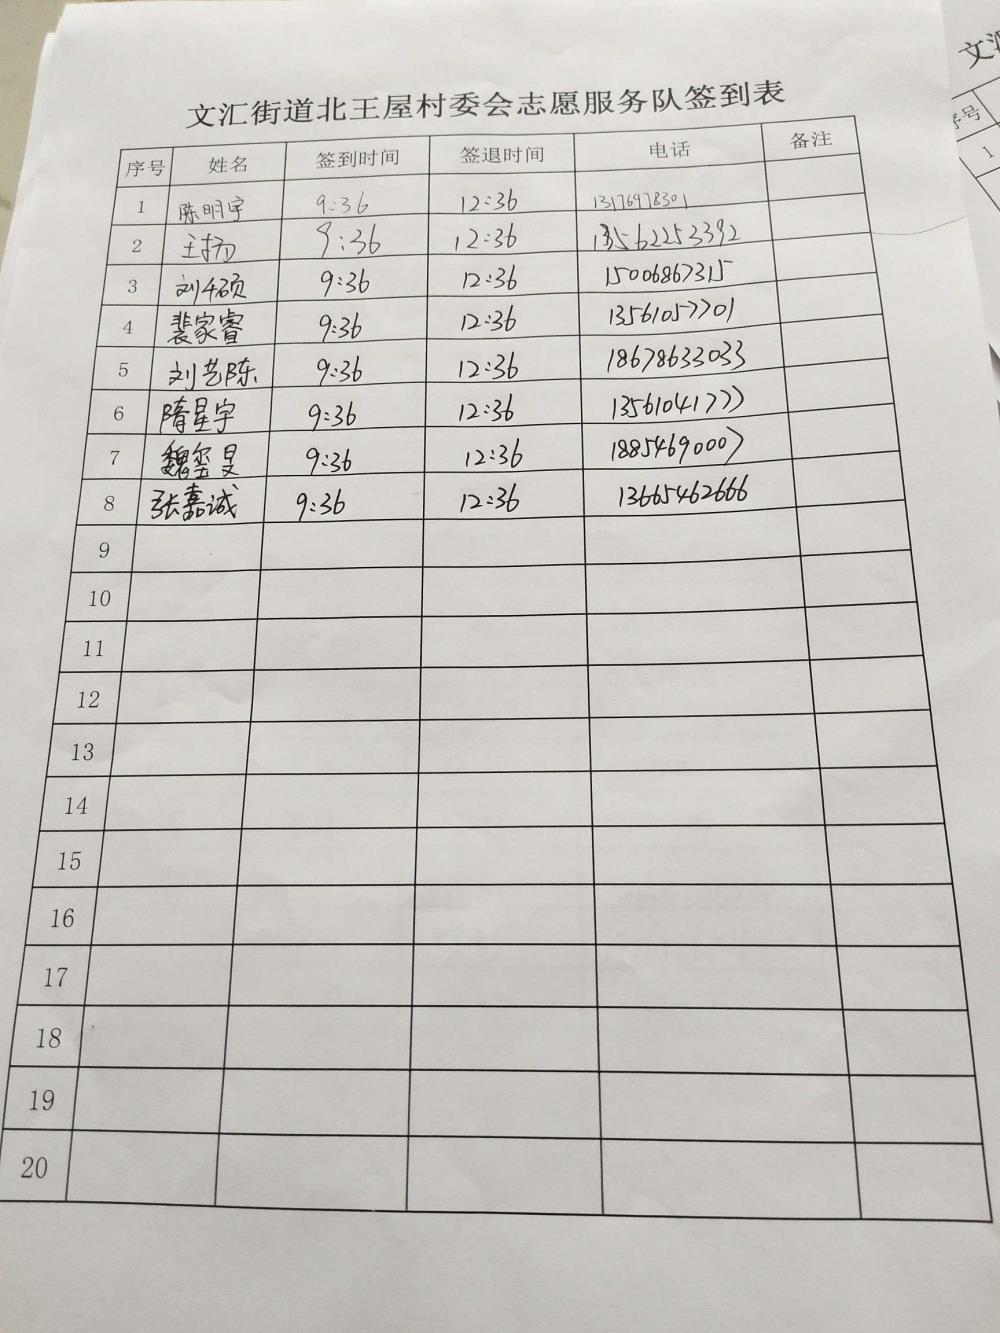 文汇街道北王屋村委会志愿服务队签到表
序号 姓名 签到时间 签退时间 电话 备注
1 陈明宇 9:36 12:36 13176478301
2 王扬 9:36 12:36 13562253392
3 刘千硕 9:36 12:36 15006867315
4 裴家睿 9:36 12:36 13561057701
5 刘艺陈 9:36 12:36 18678633033
6 隋星宇 9:36 12:36 13561041777
7 魏玺旻 9:36 12:36 18854690007
8 张嘉诚 9:36 12:36 13665462666
9
10
11
12
13
14
15
16
17
18
19
20
文汇
序号
1